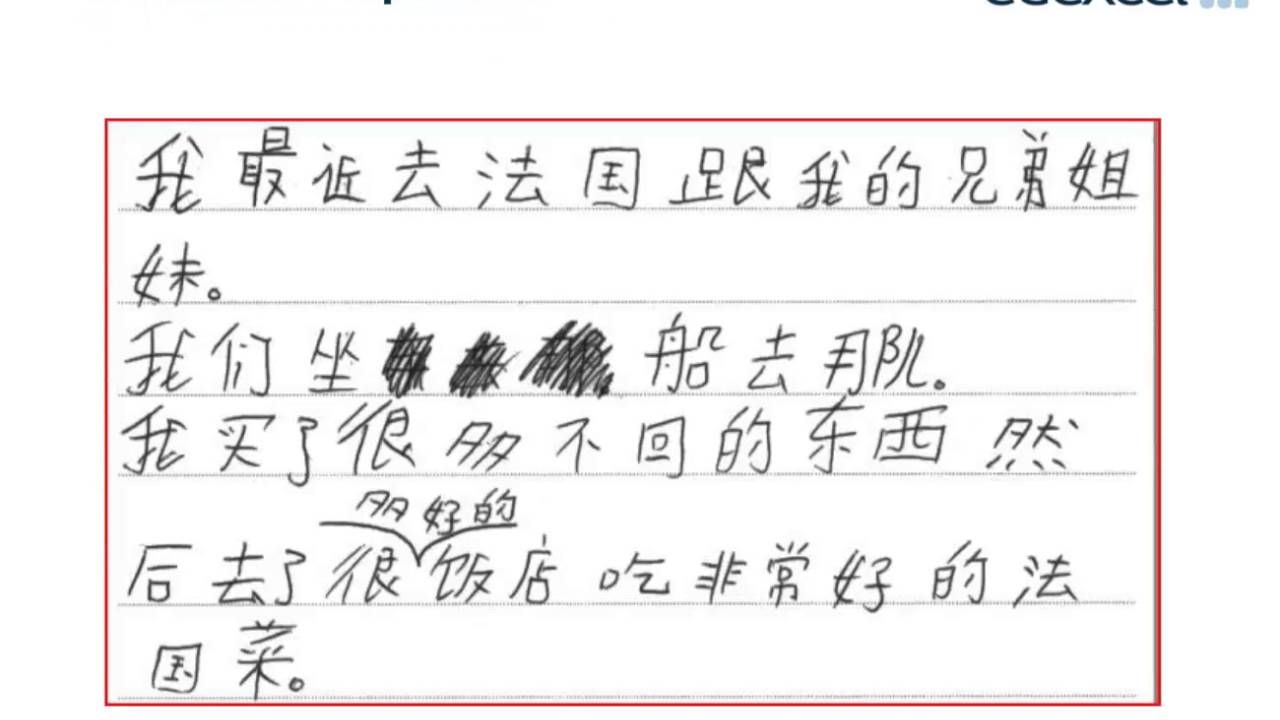 edexcel
我最近去法国跟我的兄弟姐
妹。
我们坐船去那儿。
我买了很多不回的东西然
多好的
后去了很饭店吃非常好的法
国菜。